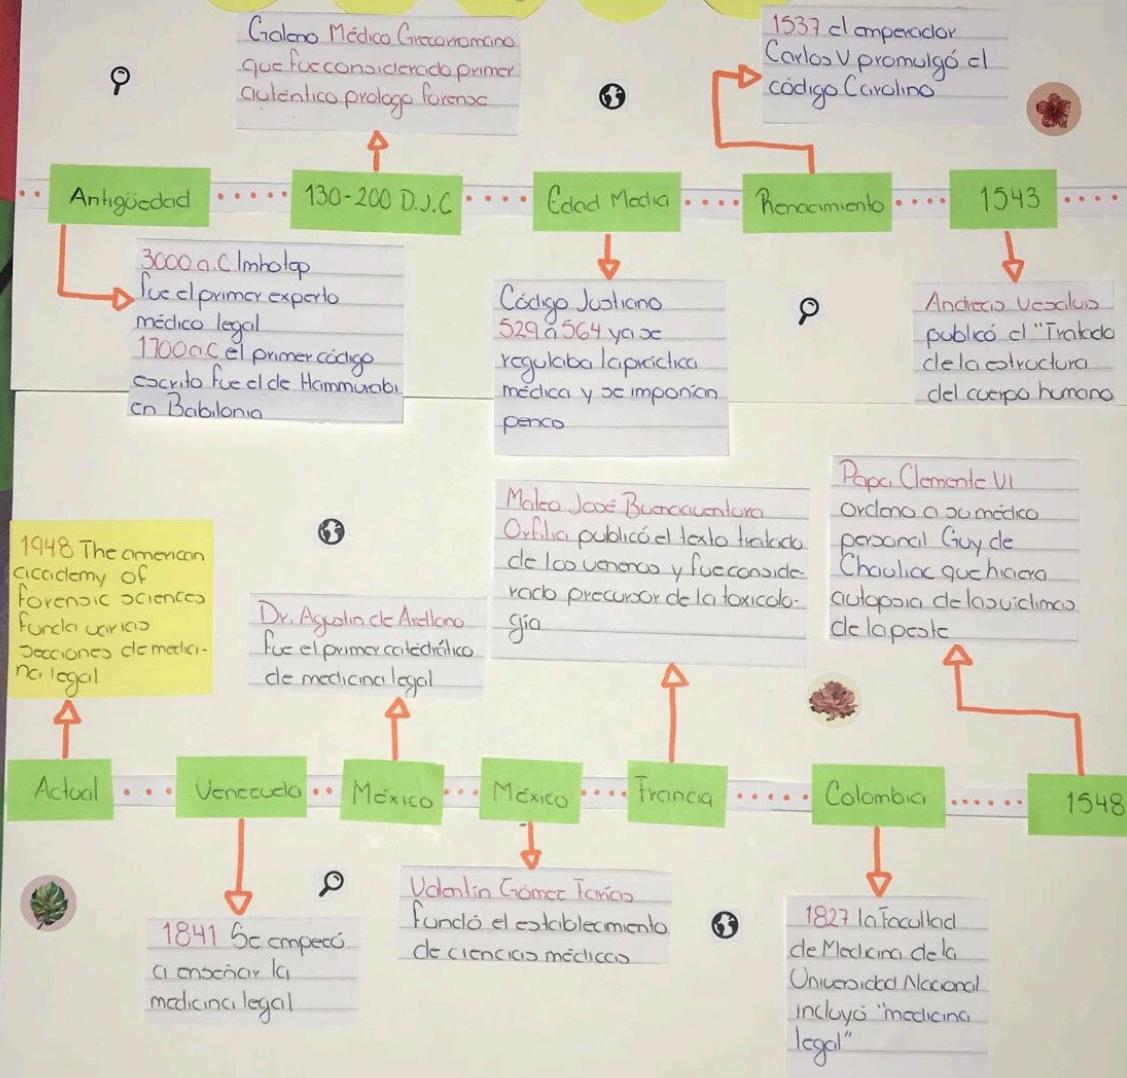 Galeno Médico Grecorromano
que fue considerado primer
auténtico prologo forense
1537 el emperador
Carlos V promulgó el
código Carolino
Antigüedad
130-200 D.J.C
Edad Media
Renacimiento
1543
3000 a.C Imhotep
fue el primer experto
médico legal
1700 a.C el primer código
escrito fue el de Hammurabi
en Babilonia
Código Justiano
529 a 564 ya se
regulaba la práctica
médica y se imponían
penas
Andreas Vesalius
publicó el "Tratado
de la estructura
del cuerpo humano
Papa Clemente VI
ordeno a su médico
personal Guy de
Chauliac que hiciera
autopsia de las victimas
de la peste
Mateo José Buenaventura
Orfilia publicó el texto tratado
de los venenos y fue conside-
rado precursor de la toxicolo-
gía
Dr. Agustin de Arellano
fue el primer catedrático
de medicina legal
1948 The american
academy of
forensic sciences
funda varias
secciones de medici-
na legal
Actual
Venezuela
México
México
Francia
Colombia
1548
1841 Se empezó
a enseñar la
medicina legal
Valentín Gómez Farías
fundó el establecimiento
de ciencias médicas
1827 la Facultad
de Medicina de la
Universidad Nacional
incluyó "medicina
legal"